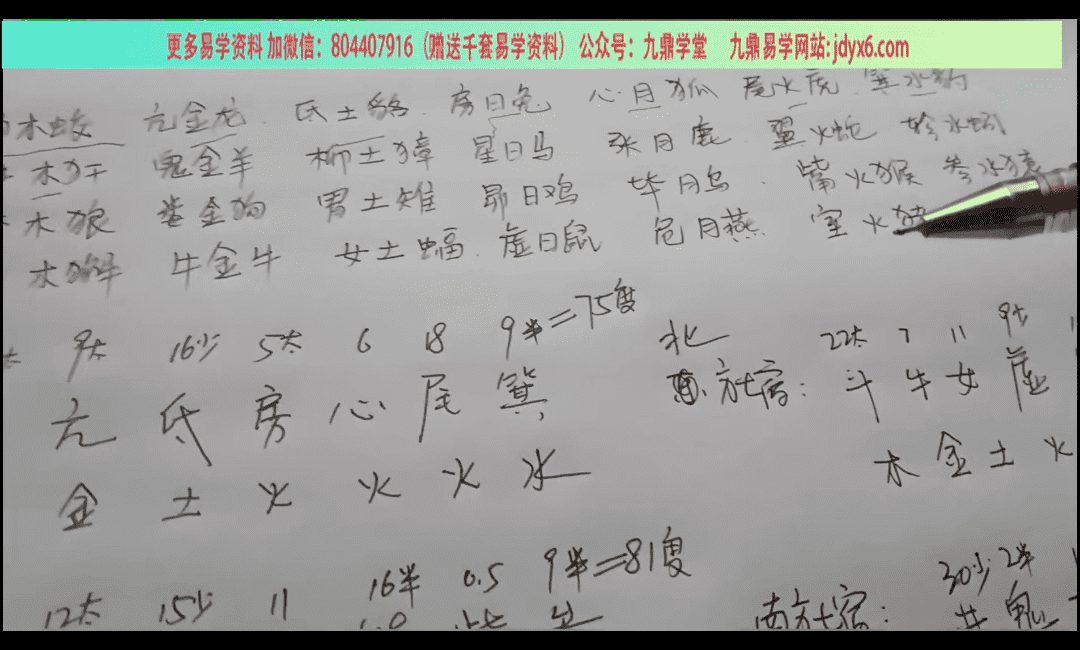 更多易学资料 加微信：804407916（赠送千套易学资料） 公众号：九鼎学堂 九鼎易学网站:jdyx6.com
木蛟 亢金龙 氐土貉 房日兔 心月狐 尾火虎 箕水豹
木犴 鬼金羊 柳土獐 星日马 张月鹿 翼火蛇 轸水蚓
木狼 娄金狗 胃土雉 昴日鸡 毕月乌 觜火猴 参水猿
木獬 牛金牛 女土蝠 虚日鼠 危月燕 室火猪
9太 16少 5太 6 18 9半=75度
亢 氐 房 心 尾 箕
金 土 火 火 火 水
北
方七宿：
22太 7 11 9太
斗 牛 女 虚
木 金 土 火
12太 15少 11 16半 0.5 9半=81度
南方七宿：
30少 2半
井 鬼